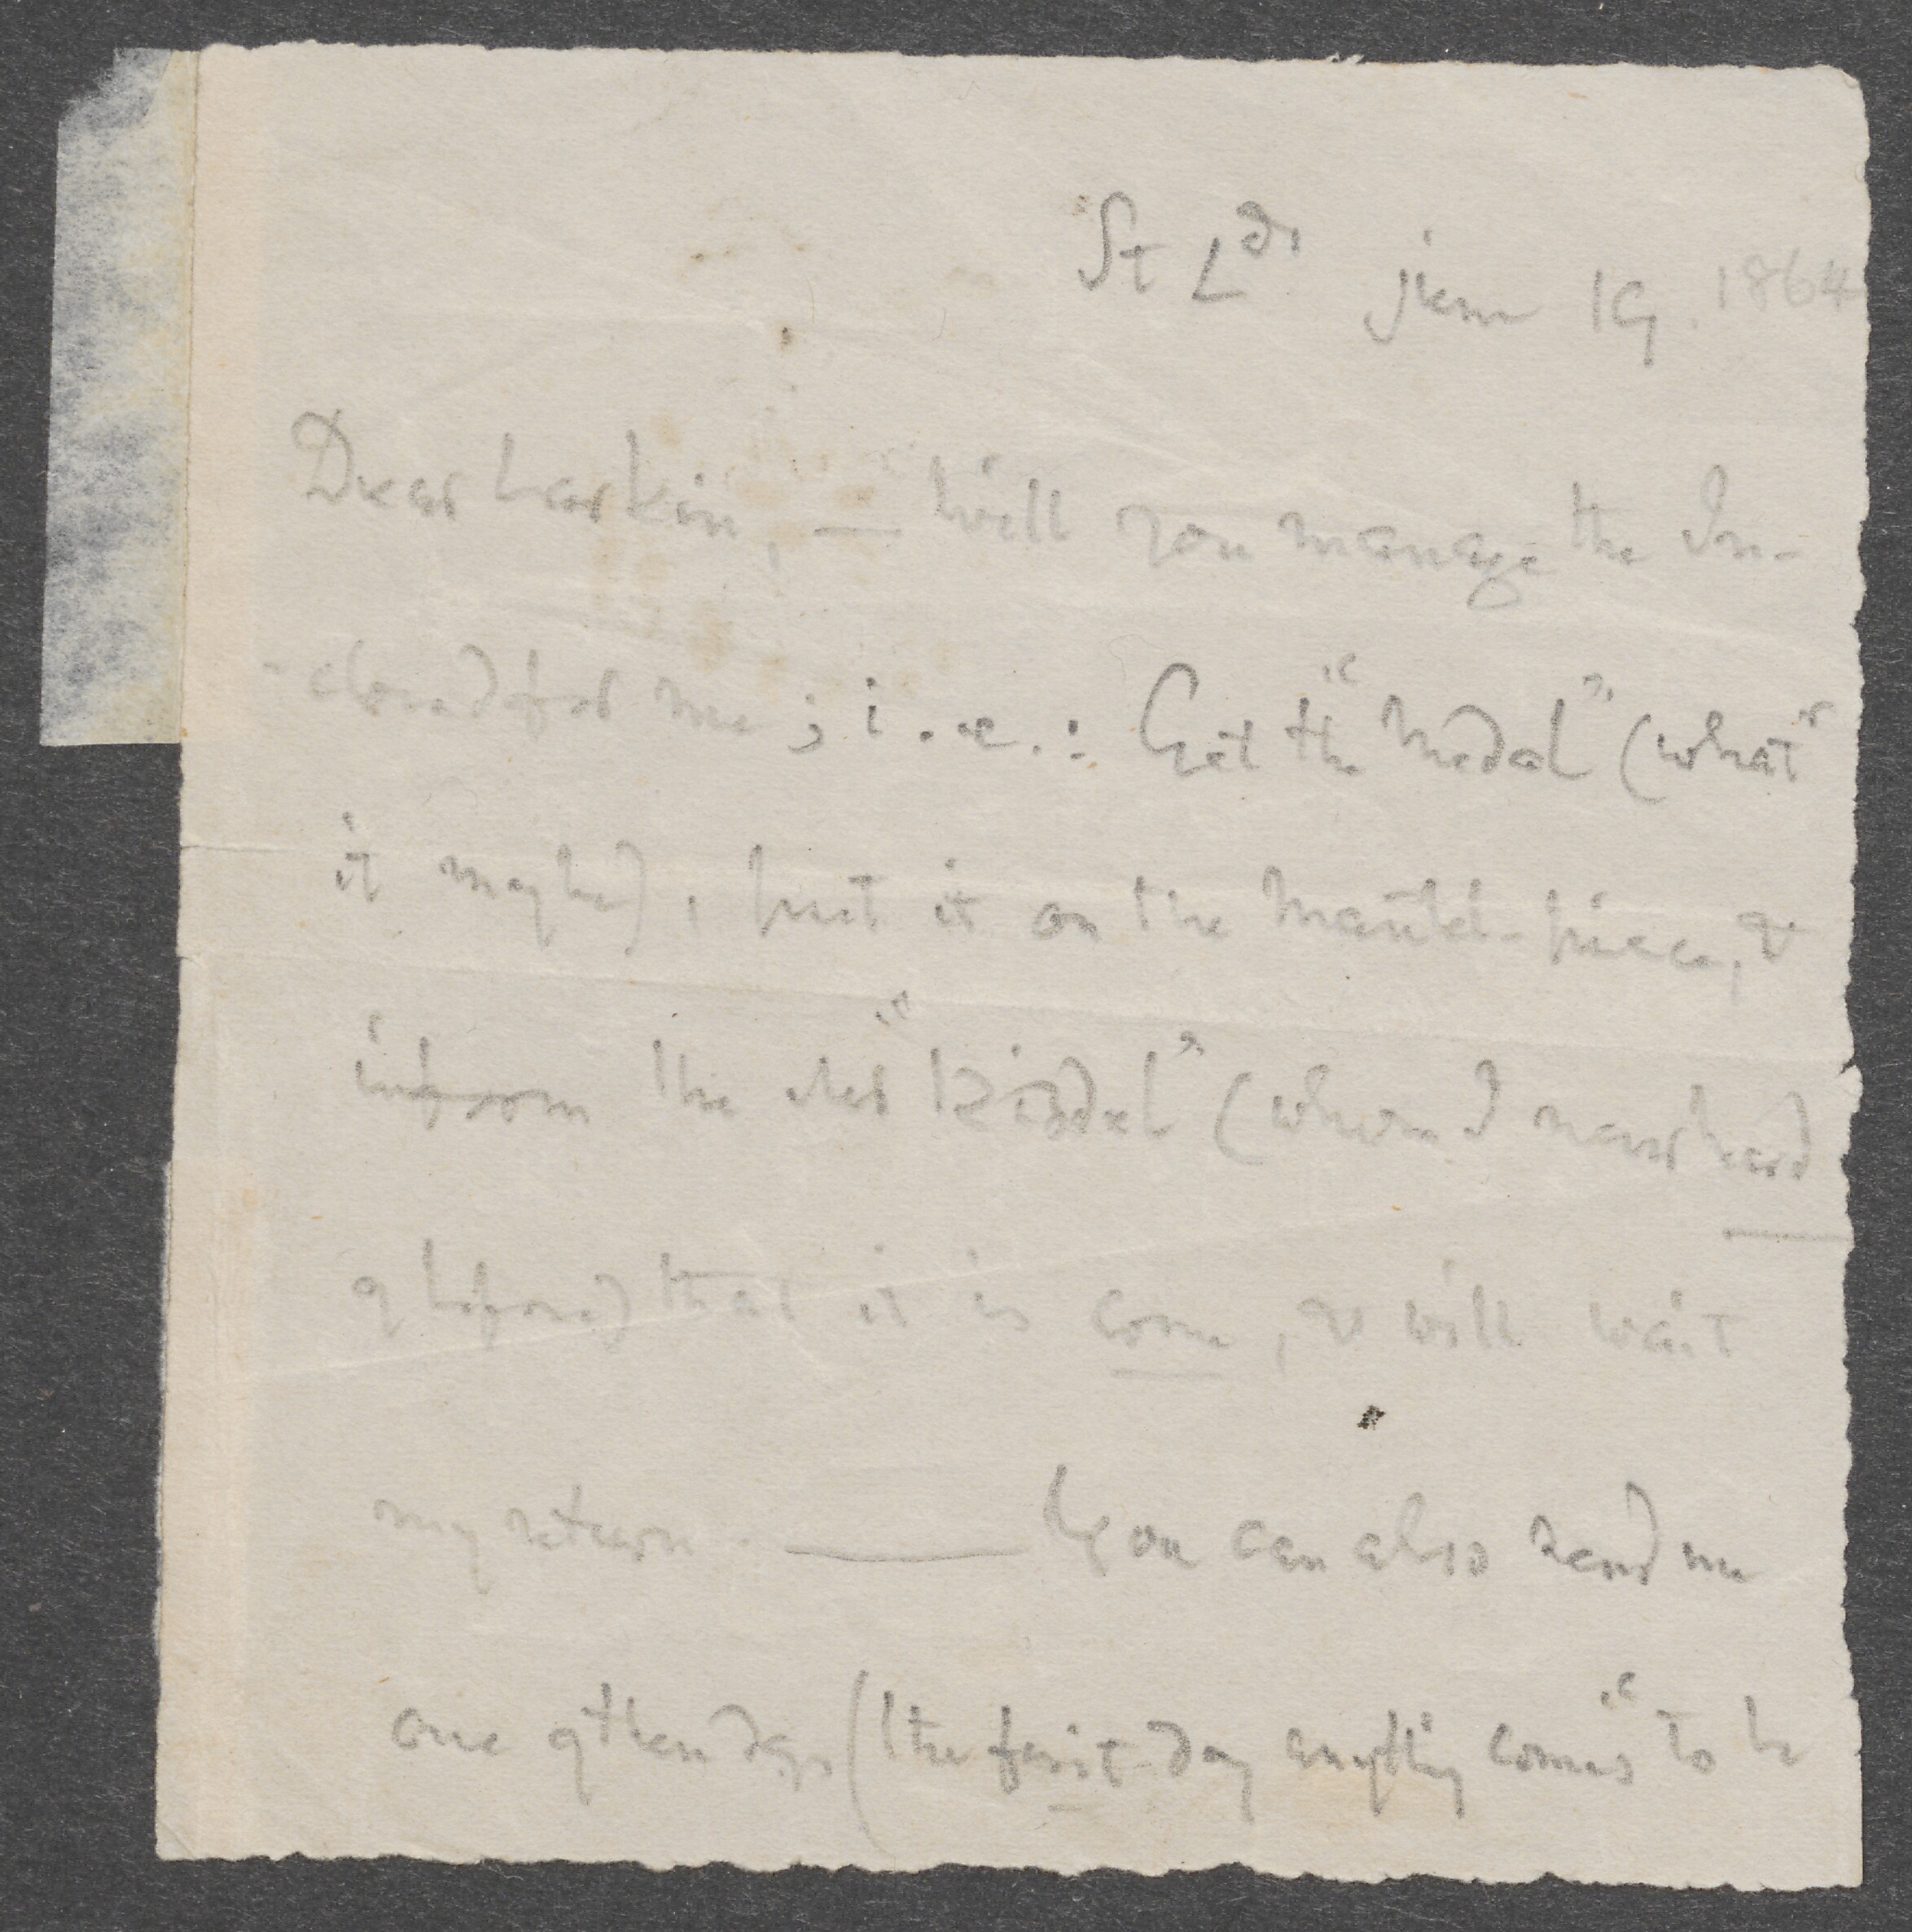 St Lds June 19. 1864
Dear Larkin, — Will you manage the In-
-closed for me; i.e.: Get the "Medal" (what"
it may be), put it on the Mantel-piece, &
inform the "Riddel" (whom I never heard
of before) that it is come, & will wait
my return. — You can also send me
one of these days (the first day anything comes "to be